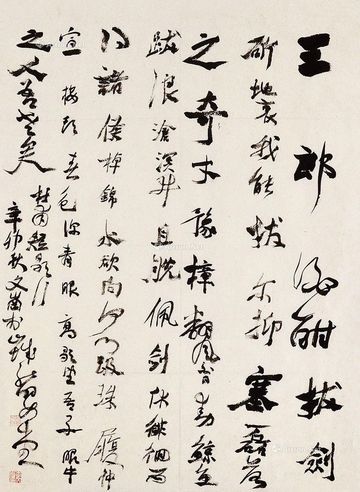 王郎酒酣拔劍
斫地哀我能拔尔抑塞磊落
之奇才豫樟翻風白日動鯨魚
跋浪滄溟開且脱佩劍休徘徊西
得諸侯棹錦水欲向何門趿珠履仲
宣樓頭春色深青眼高歌望吾子眼中
之人吾老矣
杜甫短歌行
辛卯秋文